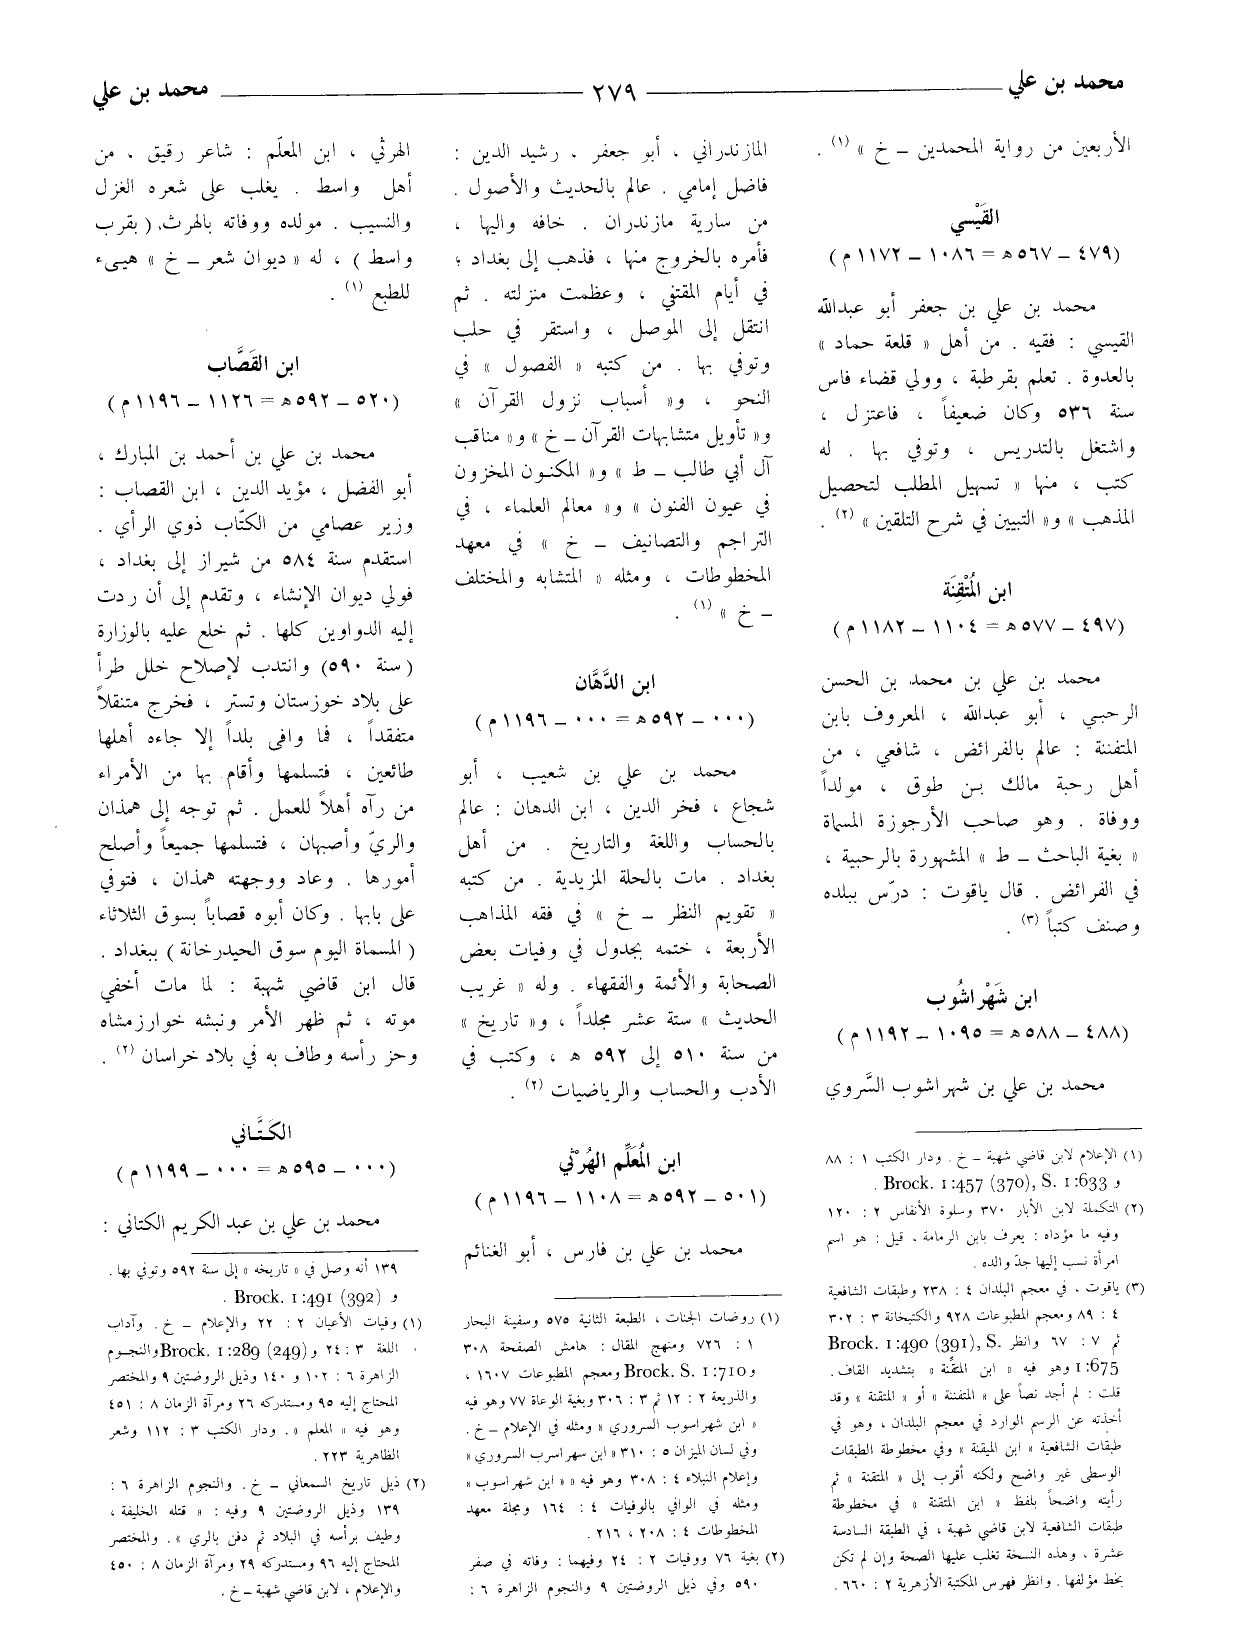 محمد بن علي
٢٧٩
محمد بن علي
الأربعين من رواية المحمدين ــ خ » (١) .
القَيْسي
(٤٧٩ ــ ٥٦٧ ه = ١٠٨٦ ــ ١١٧٢ م)
محمد بن علي بن جعفر أبو عبدالله
القيسي : فقيه . من أهل « قلعة حماد »
بالعدوة . تعلم بقرطبة ، وولي قضاء فاس
سنة ٥٣٦ وكان ضعيفاً ، فاعتزل ،
واشتغل بالتدريس ، وتوفي بها . له
كتب ، منها « تسهيل المطلب لتحصيل
المذهب » و« التبيين في شرح التلقين » (٢) .
ابن المُتْقِنَة
(٤٩٧ ــ ٥٧٧ ه = ١١٠٤ ــ ١١٨٢ م)
محمد بن علي بن محمد بن الحسن
الرحبي ، أبو عبدالله ، المعروف بابن
المتفننة : عالم بالفرائض ، شافعي ، من
أهل رحبة مالك بن طوق ، مولداً
ووفاة . وهو صاحب الأرجوزة المسماة
« بغية الباحث ــ ط » المشهورة بالرحبية ،
في الفرائض . قال ياقوت : درّس ببلده
وصنف كتباً (٣) .
ابن شَهْراشُوب
(٤٨٨ ــ ٥٨٨ ه = ١٠٩٥ ــ ١١٩٢ م)
محمد بن علي بن شهراشوب السَّروي
(١) الإعلام لابن قاضي شهبة ــ خ . ودار الكتب ١ : ٨٨
و Brock. 1:457 (370), S. 1:633 .
(٢) التكملة لابن الأبار ٣٧٠ وسلوة الأنفاس ٢ : ١٢٠
وفيه ما مؤداه : يعرف بابن الرمامة ، قيل : هو اسم
امرأة نسب إليها جدّ والده .
(٣) ياقوت ، في معجم البلدان ٤ : ٢٣٨ وطبقات الشافعية
٤ : ٨٩ ومعجم المطبوعات ٩٢٨ والكتبخانة ٣ : ٣٠٢
ثم ٧ : ٦٧ وانظر Brock. 1:490 (391), S.
1:675 وهو فيه « ابن المتقّنة » بتشديد القاف .
قلت : لم أجد نصاً على « المتفننة » أو « المتقنة » وقد
أخذته عن الرسم الوارد في معجم البلدان ، وهو في
طبقات الشافعية « ابن الميقنة » وفي مخطوطة الطبقات
الوسطى غير واضح ولكنه أقرب إلى « المتقنة » ثم
رأيته واضحاً بلفظ « ابن المتقنة » في مخطوطة
طبقات الشافعية لابن قاضي شهبة ، في الطبقة السادسة
عشرة ، وهذه النسخة تغلب عليها الصحة وإن لم تكن
بخط مؤلفها . وانظر فهرس المكتبة الأزهرية ٢ : ٦٦٠ .
المازندراني ، أبو جعفر ، رشيد الدين :
فاضل إمامي . عالم بالحديث والأصول .
من سارية مازندران . خافه واليها ،
فأمره بالخروج منها ، فذهب إلى بغداد ؛
في أيام المقتفي ، وعظمت منزلته . ثم
انتقل إلى الموصل ، واستقر في حلب
وتوفي بها . من كتبه « الفصول » في
النحو ، و« أسباب نزول القرآن »
و« تأويل متشابهات القرآن ــ خ » و« مناقب
آل أبي طالب ــ ط » و« المكنون المخزون
في عيون الفنون » و« معالم العلماء ، في
التراجم والتصانيف ــ خ » في معهد
المخطوطات ، ومثله « المتشابه والمختلف
ــ خ » (١) .
ابن الدَّهَّان
(٠٠٠ ــ ٥٩٢ ه = ٠٠٠ ــ ١١٩٦ م)
محمد بن علي بن شعيب ، أبو
شجاع ، فخر الدين ، ابن الدهان : عالم
بالحساب واللغة والتاريخ . من أهل
بغداد . مات بالحلة المزيدية . من كتبه
« تقويم النظر ــ خ » في فقه المذاهب
الأربعة ، ختمه بجدول في وفيات بعض
الصحابة والأئمة والفقهاء . وله « غريب
الحديث » ستة عشر مجلداً ، و« تاريخ »
من سنة ٥١٠ إلى ٥٩٢ ه ، وكتب في
الأدب والحساب والرياضيات (٢) .
ابن المُعَلِّم الهُرْثي
(٥٠١ ــ ٥٩٢ ه = ١١٠٨ ــ ١١٩٦ م)
محمد بن علي بن فارس ، أبو الغنائم
(١) روضات الجنات ، الطبعة الثانية ٥٧٥ وسفينة البحار
١ : ٧٢٦ ومنهج المقال : هامش الصفحة ٣٠٨
و Brock. S. 1:710 ومعجم المطبوعات ١٦٠٧ ،
والذريعة ٢ : ١٢ ثم ٣ : ٣٠٦ وبغية الوعاة ٧٧ وهو فيه
« ابن شهراسوب السروري » ومثله في الإعلام ــ خ .
وفي لسان الميزان ٥ : ٣١٠ « ابن سهراسرب السروري »
وإعلام النبلاء ٤ : ٣٠٨ وهو فيه « « ابن شهراسوب »
ومثله في الوافي بالوفيات ٤ : ١٦٤ ومجلة معهد
المخطوطات ٤ : ٢٠٨ ، ٢١٦ .
(٢) بغية ٧٦ ووفيات ٢ : ٢٤ وفيهما : وفاته في صفر
٥٩٠ وفي ذيل الروضتين ٩ والنجوم الزاهرة ٦ :
الهرثي ، ابن المعلّم : شاعر رقيق ، من
أهل واسط . يغلب على شعره الغزل
والنسيب . مولده ووفاته بالهرث ( بقرب
واسط ) ، له « ديوان شعر ــ خ » هيىء
للطبع (١) .
ابن القَصَّاب
(٥٢٠ ــ ٥٩٢ ه = ١١٢٦ ــ ١١٩٦ م)
محمد بن علي بن أحمد بن المبارك ،
أبو الفضل ، مؤيد الدين ، ابن القصاب :
وزير عصامي من الكتّاب ذوي الرأي .
استقدم سنة ٥٨٤ من شيراز إلى بغداد ،
فولي ديوان الإنشاء ، وتقدم إلى أن ردت
إليه الدواوين كلها . ثم خلع عليه بالوزارة
(سنة ٥٩٠) وانتدب لإصلاح خلل طرأ
على بلاد خوزستان وتستر ، فخرج متنقلاً
متفقداً ، فما وافى بلداً إلا جاءه أهلها
طائعين ، فتسلمها وأقام بها من الأمراء
من رآه أهلاً للعمل . ثم توجه إلى همذان
والريّ وأصبهان ، فتسلمها جميعاً وأصلح
أمورها . وعاد ووجهته همذان ، فتوفي
على بابها . وكان أبوه قصاباً بسوق الثلاثاء
( المسماة اليوم سوق الحيدرخانة ) ببغداد .
قال ابن قاضي شهبة : لما مات أخفي
موته ، ثم ظهر الأمر ونبشه خوارزمشاه
وحز رأسه وطاف به في بلاد خراسان (٢) .
الكَتَّاني
(٠٠٠ ــ ٥٩٥ ه = ٠٠٠ ــ ١١٩٩ م)
محمد بن علي بن عبد الكريم الكتاني :
١٣٩ أنه وصل في « تاريخه » إلى سنة ٥٩٢ وتوفي بها .
و Brock. 1:491 (392) .
(١) وفيات الأعيان ٢ : ٢٢ والإعلام ــ خ . وآداب
اللغة ٣ : ٢٤ و Brock. 1:289 (249) والنجوم
الزاهرة ٦ : ١٠٢ و ١٤٠ وذيل الروضتين ٩ والمختصر
المحتاج إليه ٩٥ ومستدركه ٢٦ ومرآة الزمان ٨ : ٤٥١
وهو فيه « المعلم » . ودار الكتب ٣ : ١١٢ وشعر
الظاهرية ٢٢٣ .
(٢) ذيل تاريخ السمعاني ــ خ . والنجوم الزاهرة ٦ :
١٣٩ وذيل الروضتين ٩ وفيه : « قتله الخليفة ،
وطيف برأسه في البلاد ثم دفن بالري » . والمختصر
المحتاج إليه ٩٦ ومستدركه ٢٩ ومرآة الزمان ٨ : ٤٥٠
والإعلام ، لابن قاضي شهبة ــ خ .